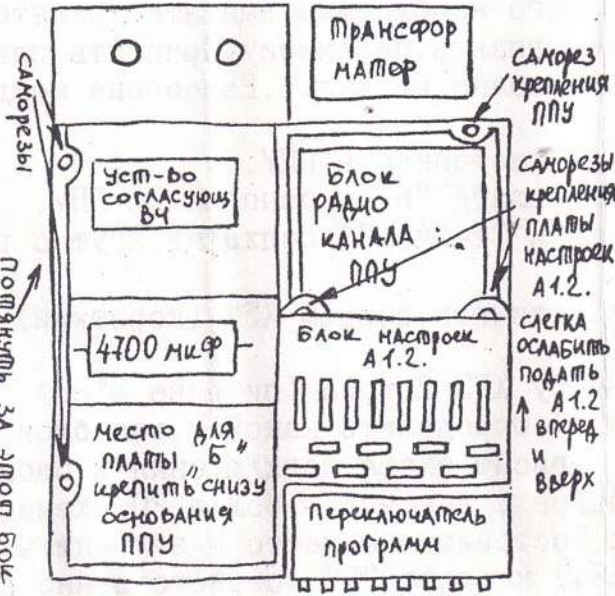 Трансфор
матор
саморезы
саморез
крепления
ППУ
Уст-во
согласующ
ВЧ
Блок
радио
канала
ППУ
саморезы
крепления
платы
настроек
А1.2.
4700 мкф
Блок настроек
А1.2.
слегка
ослабить
подать
А1.2
вперед
и
вверх
место для
платы „Б„
крепить снизу
основания
ППУ
Переключатель
программ
Потянуть за этот бок